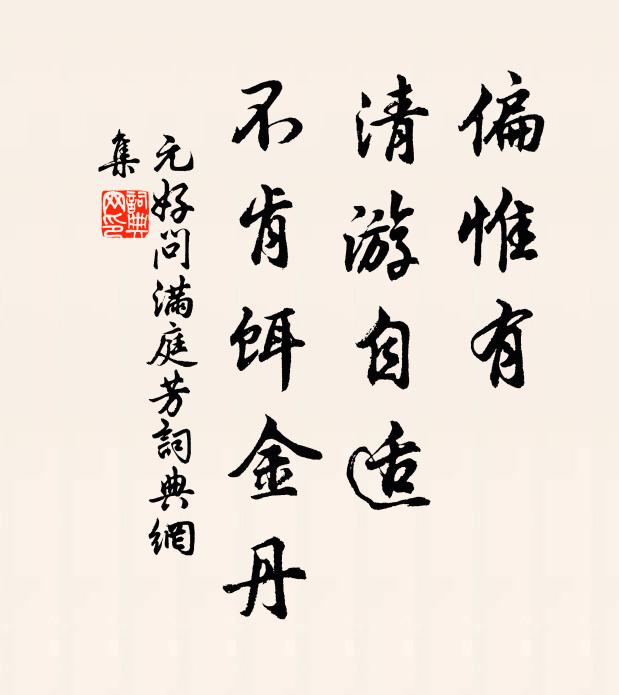 偏惟有
清游自适
不肯餌金丹
元好问满庭芳詞典網
集
詞典
网印